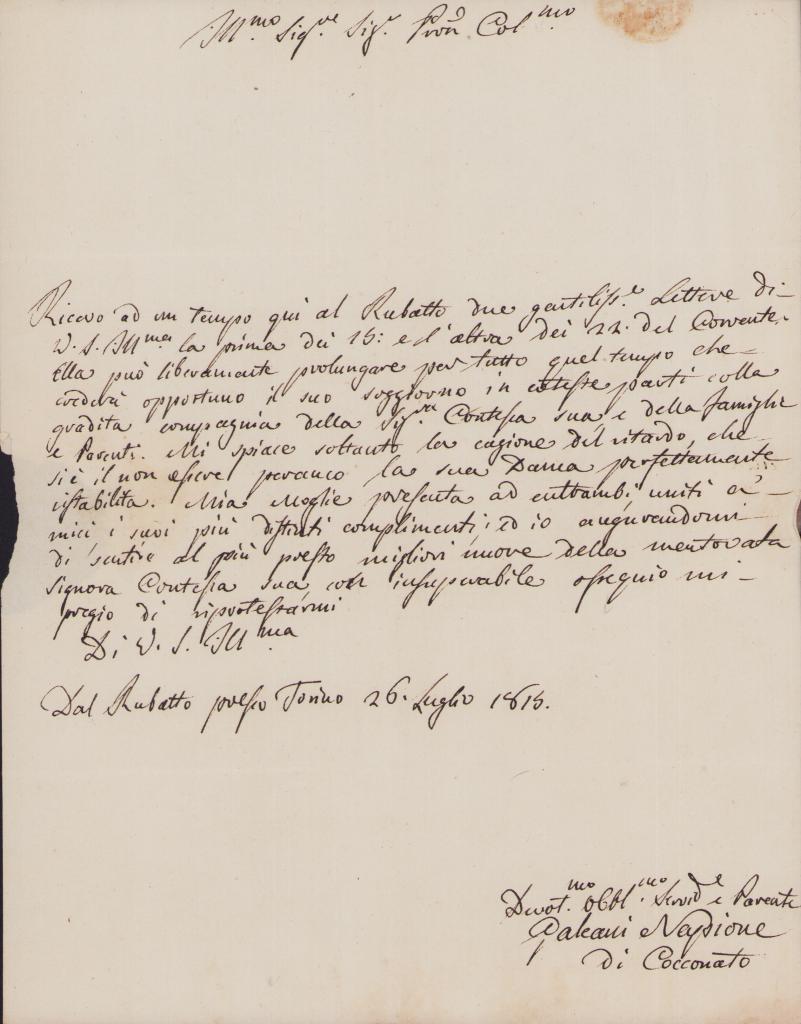 Ill.mo Sig.re Sig.r Pron Col.mo
Ricevo ad un tempo qui al Rubatto due gentiliss.e Lettere di
V. S. Ill.ma la prima dei 15: e l'altra dei 22. del Corrente.
Ella può liberamente prolungare per tutto quel tempo che
crederà opportuno il suo soggiorno in coteste parti colla
gradita compagnia della Sig.ra Contessa sua, e della famiglia
e Parenti. Mi spiace soltanto la cagione del ritardo, che
si è il non essere peranco la sua Dama perfettamente
ristabilita. Mia Moglie presenta ad entrambi uniti a'
miei i suoi più distinti complimenti; ed io augurandomi
di sentire al più presto migliori nuove della mentovata
Signora Contessa sua, con insuperabile ossequio mi
pregio di riprotestarmi
Di V. S. Ill.ma
Dal Rubatto presso Torino 26. Luglio 1815.
Devot.mo Obbl.mo Servid.e e Parente
Galeani Napione
di Cocconato